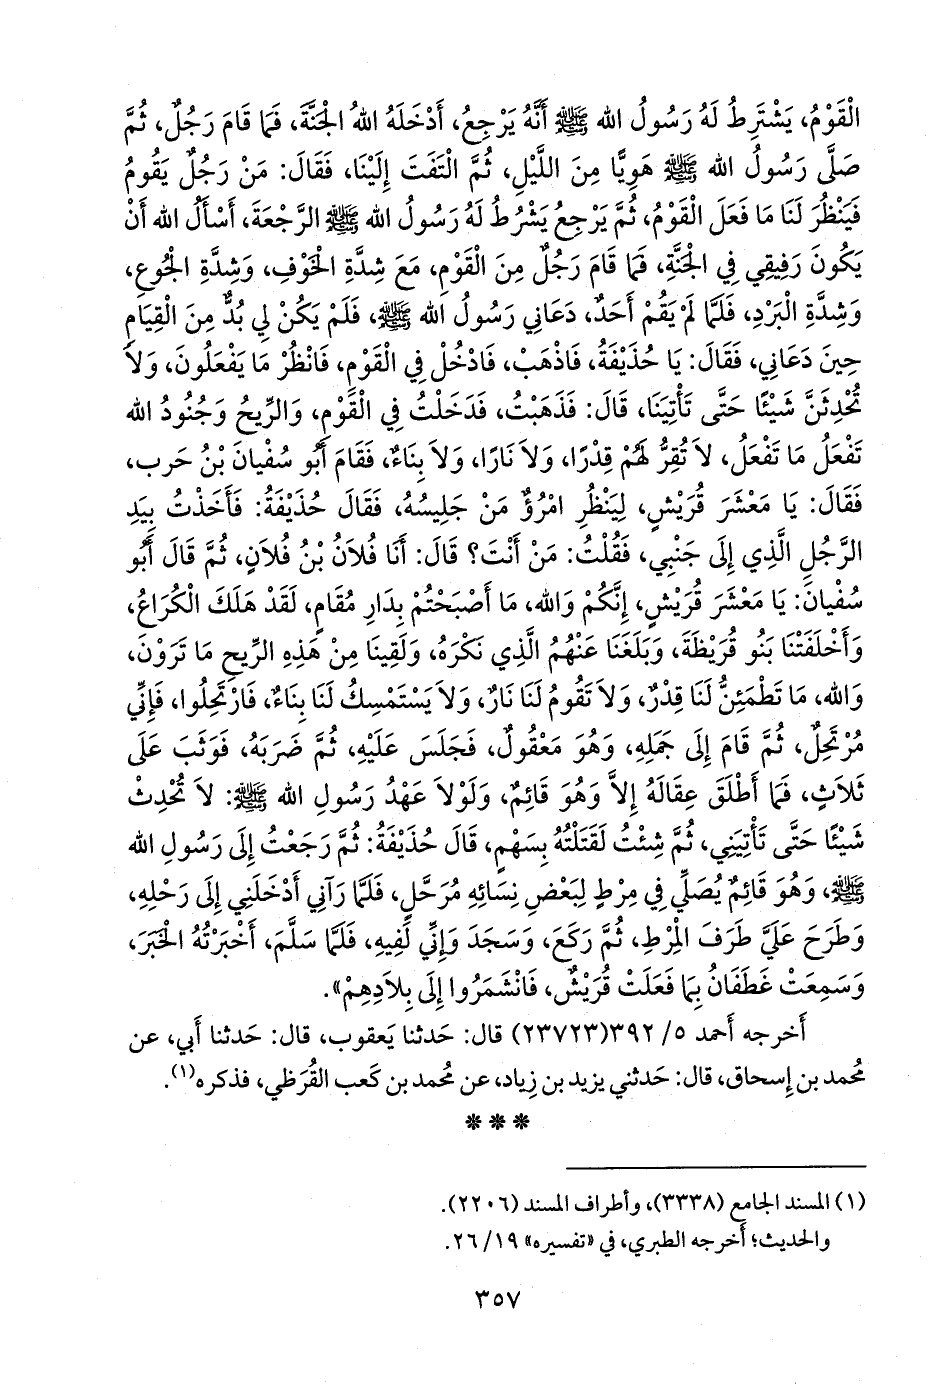 الْقَوْمُ، يَشْتَرِطُ لَهُ رَسُولُ الله ﷺ أَنَّهُ يَرْجِعُ، أَدْخَلَهُ اللهُ الْجَنَّةَ، فَمَا قَامَ رَجُلٌ، ثُمَّ
صَلَّى رَسُولُ الله ﷺ هَوِيًّا مِنَ اللَّيْلِ، ثُمَّ الْتَفَتَ إِلَيْنَا، فَقَالَ: مَنْ رَجُلٌ يَقُومُ
فَيَنْظُرَ لَنَا مَا فَعَلَ الْقَوْمُ، ثُمَّ يَرْجِعُ يَشْرُطُ لَهُ رَسُولُ الله ﷺ الرَّجْعَةَ، أَسْأَلُ الله أَنْ
يَكُونَ رَفِيقِي فِي الْجَنَّةِ، فَمَا قَامَ رَجُلٌ مِنَ الْقَوْمِ، مَعَ شِدَّةِ الْخَوْفِ، وَشِدَّةِ الْجُوعِ،
وَشِدَّةِ الْبَرْدِ، فَلَمَّا لَمْ يَقُمْ أَحَدٌ، دَعَانِي رَسُولُ الله ﷺ، فَلَمْ يَكُنْ لِي بُدٌّ مِنَ الْقِيَامِ
حِينَ دَعَانِي، فَقَالَ: يَا حُذَيْفَةُ، فَاذْهَبْ، فَادْخُلْ فِي الْقَوْمِ، فَانْظُرْ مَا يَفْعَلُونَ، وَلاَ
تُحْدِثَنَّ شَيْئًا حَتَّى تَأْتِيَنَا، قَالَ: فَذَهَبْتُ، فَدَخَلْتُ فِي الْقَوْمِ، وَالرِّيحُ وَجُنُودُ الله
تَفْعَلُ مَا تَفْعَلُ، لاَ تُقِرُّ لَهُمْ قِدْرًا، وَلاَ نَارًا، وَلاَ بِنَاءً، فَقَامَ أَبُو سُفْيانَ بْنُ حَرب،
فَقَالَ: يَا مَعْشَرَ قُرَيْشٍ، لِيَنْظُرِ امْرُؤٌ مَنْ جَلِيسُهُ، فَقَالَ حُذَيْفَةُ: فَأَخَذْتُ بِيَدِ
الرَّجُلِ الَّذِي إِلَى جَنْبِي، فَقُلْتُ: مَنْ أَنْتَ؟ قَالَ: أَنَا فُلاَنُ بْنُ فُلاَنٍ، ثُمَّ قَالَ أَبُو
سُفْيانَ: يَا مَعْشَرَ قُرَيْشٍ، إِنَّكُمْ وَالله، مَا أَصْبَحْتُمْ بِدَارِ مُقَامٍ، لَقَدْ هَلَكَ الْكُرَاعُ،
وَأَخْلَفَتْنَا بَنُو قُرَيْظَةَ، وَبَلَغَنَا عَنْهُمُ الَّذِي نَكْرَهُ، وَلَقِينَا مِنْ هَذِهِ الرِّيحِ مَا تَرَوْنَ،
وَالله، مَا تَطْمَئِنُّ لَنَا قِدْرٌ، وَلاَ تَقُومُ لَنَا نَارٌ، وَلاَ يَسْتَمْسِكُ لَنَا بِنَاءٌ، فَارْتَحِلُوا، فَإِنِّي
مُرْتَحِلٌ، ثُمَّ قَامَ إِلَى جَمَلِهِ، وَهُوَ مَعْقُولٌ، فَجَلَسَ عَلَيْهِ، ثُمَّ ضَرَبَهُ، فَوَثَبَ عَلَى
ثَلاَثٍ، فَمَا أَطْلَقَ عِقَالَهُ إِلاَّ وَهُوَ قَائِمٌ، وَلَوْلاَ عَهْدُ رَسُولِ الله ﷺ: لاَ تُحْدِثْ
شَيْئًا حَتَّى تَأْتِيَنِي، ثُمَّ شِئْتُ لَقَتَلْتُهُ بِسَهْمٍ، قَالَ حُذَيْفَةُ: ثُمَّ رَجَعْتُ إِلَى رَسُولِ الله
ﷺ، وَهُوَ قَائِمٌ يُصَلِّي فِي مِرْطٍ لِبَعْضِ نِسَائِهِ مُرَحَّلٍ، فَلَمَّا رَآنِي أَدْخَلَنِي إِلَى رَحْلِهِ،
وَطَرَحَ عَلَيَّ طَرَفَ الْمِرْطِ، ثُمَّ رَكَعَ، وَسَجَدَ وَإِنِّي لَفِيهِ، فَلَمَّا سَلَّمَ، أَخْبَرْتُهُ الْخَبَرَ،
وَسَمِعَتْ غَطَفَانُ بِمَا فَعَلَتْ قُرَيْشٌ، فَانْشَمَرُوا إِلَى بِلاَدِهِمْ».
أَخرجه أَحمد ٥/ ٣٩٢(٢٣٧٢٣) قال: حَدثنا يَعقوب، قال: حَدثنا أَبي، عن
مُحمد بن إِسحاق، قال: حَدثني يزيد بن زِياد، عن مُحمد بن كَعب القُرَظي، فذكره(١).
* * *
(١) المسند الجامع (٣٣٣٨)، وأطراف المسند (٢٢٠٦).
والحديث؛ أَخرجه الطبري، في «تفسيره» ١٩/ ٢٦.
٣٥٧